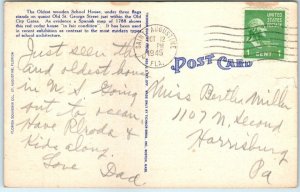 The Oldest wooden School House, under three flags
stands on quaint Old St. George Street just within the Old
City Gates. An evidence a Spanish map of 1788 shows
this red cedar house "in fair condition". It has been used
in recent exhibition as contrast to the most modern types
of school architecture.
ST. AUGUSTINE
OCT 2
PM
1945
FLA.
1 CENT 1
POST CARD
Just seen the
and oldest house
in U S Going
out to ocean.
Have Rhoda &
Kids along
Love Dad
Miss Bertha Miller
1107 N. Second
Harrisburg
Pa